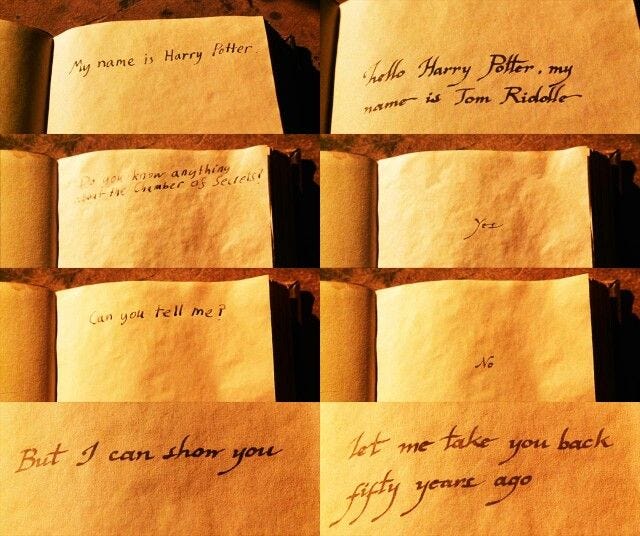 My name is Harry Potter.
hello Harry Potter. my
name is Tom Riddle
Do you know anything
about the Chamber of Secrets?
Yes
Can you tell me?
No
But I can show you
let me take you back
fifty years ago